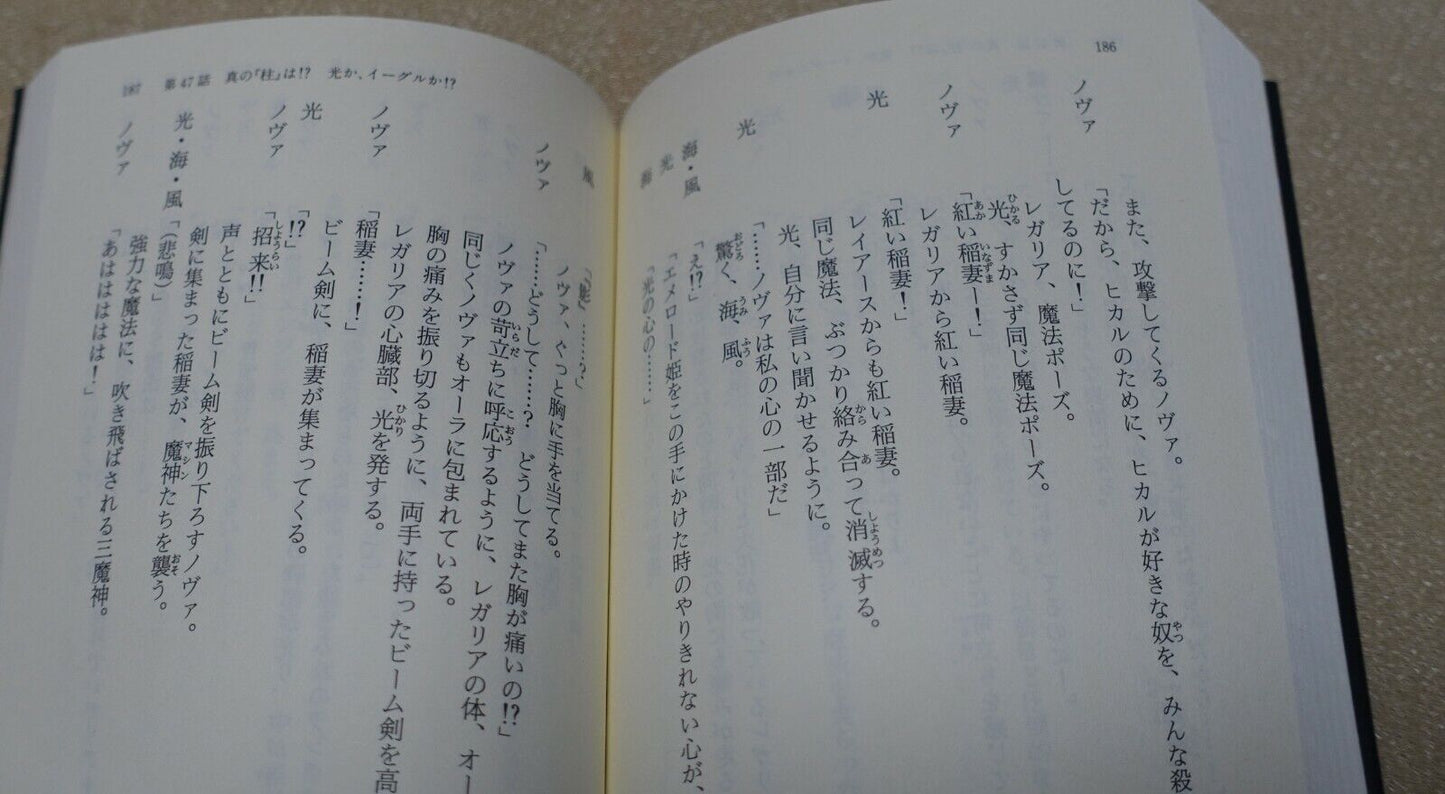 186
また、攻撃してくるノヴァ。
ノヴァ　「だから、ヒカルのために、ヒカルが好きな奴を、みんな殺
やつ
してるのに！」
レガリア、魔法ポーズ。
光、すかさず同じ魔法ポーズ。
ひかる
ノヴァ　「紅い稲妻ー！」
あか　いなずま
レガリアから紅い稲妻。
光　「紅い稲妻！」
レイアースからも紅い稲妻。
同じ魔法、ぶつかり絡み合って消滅する。
から　あ　しようめつ
光、自分に言い聞かせるように。
光　「……ノヴァは私の心の一部だ」
驚く、海、風。
おどろ　うみ　ふう
海・風　「え!?」
光　「エメロード姫をこの手にかけた時のやりきれない心が、
海　「光の心の……」
187　第47話　真の「柱」は!?　光か、イーグルか!?
風　……？」
ノヴァ、ぐっと胸に手を当てる。
ノヴァ　「……どうして……？　どうしてまた胸が痛いの!?」
ノヴァの苛立ちに呼応するように、レガリアの体、オー
いらだ　こおう
同じくノヴァもオーラに包まれている。
胸の痛みを振り切るように、両手に持ったビーム剣を高
レガリアの心臓部、光を発する。
ひかり
ノヴァ　「稲妻……！」
ビーム剣に、稲妻が集まってくる。
光　「!?」
ノヴァ　「招来!!」
しようらい
声とともにビーム剣を振り下ろすノヴァ。
剣に集まった稲妻が、魔神たちを襲う。
マシン　おそ
光・海・風　「（悲鳴）」
強力な魔法に、吹き飛ばされる三魔神。
ノヴァ　「あはははは！」